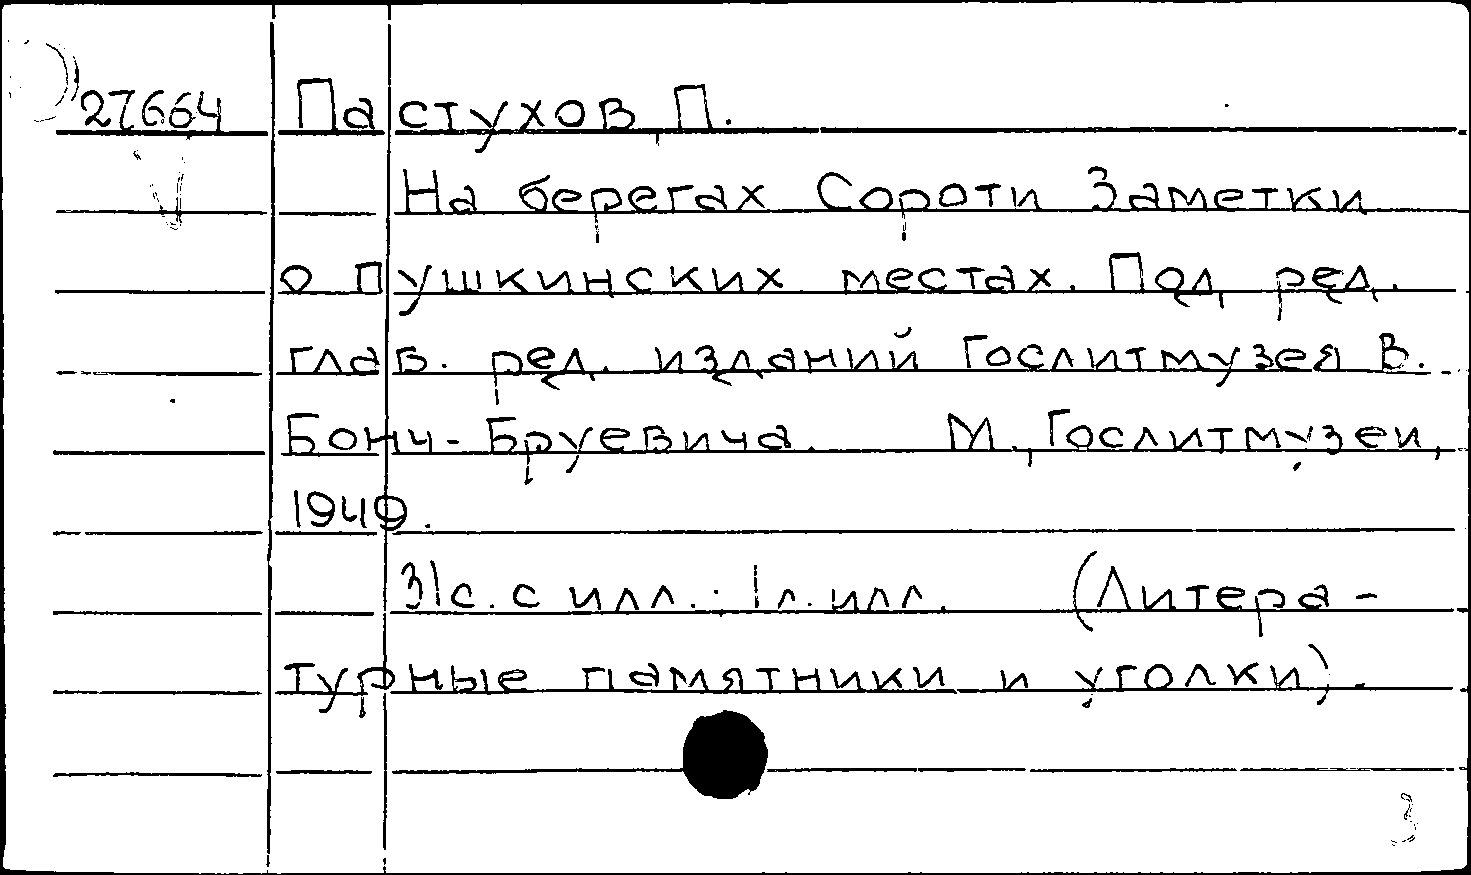 27664 Пастухов, П.
На берегах Сороти Заметки
о Пушкинских местах. Под ред.
глав. ред. изданий Гослитмузея В.
Бонч-Бруевича. М., Гослитмузеи,
1949.
31с. с илл.; 1л. илл. (Литера-
турные памятники и уголки).
3